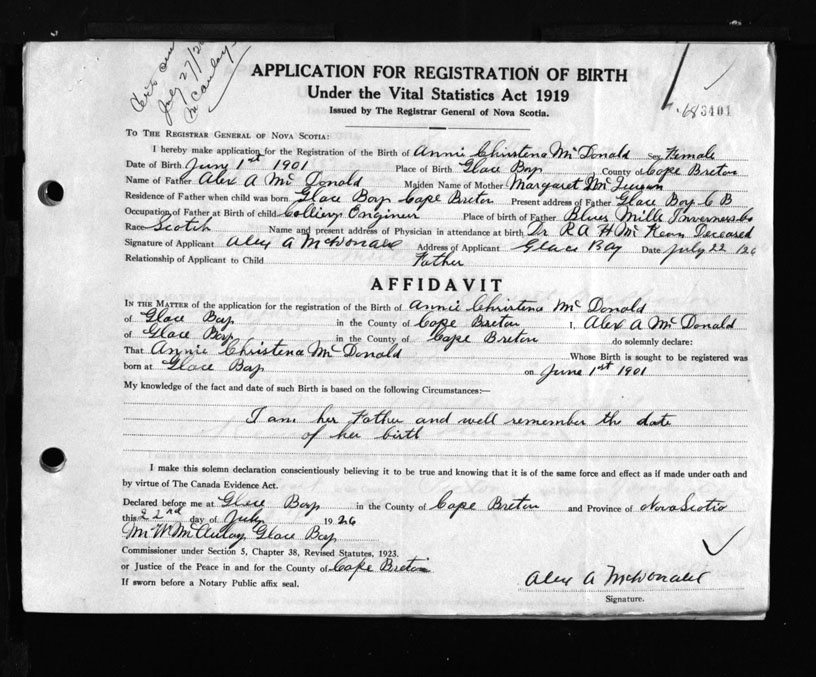 July 27/26
McAulay
APPLICATION FOR REGISTRATION OF BIRTH
Under the Vital Statistics Act 1919
Issued by The Registrar General of Nova Scotia.
3401
TO THE REGISTRAR GENERAL OF NOVA SCOTIA:
I hereby make application for the Registration of the Birth of Annie Christena McDonald Sex Female
Date of Birth June 1st 1901 Place of Birth Glace Bay County of Cape Breton
Name of Father Alex A McDonald Maiden Name of Mother Margaret
Residence of Father when child was born Glace Bay Cape Breton Present address of Father Glace Bay C B
Occupation of Father at Birth of child Colliery Engineer Place of birth of Father Blues Mills Inverness Co
Race Scotch Name and present address of Physician in attendance at birth Dr R A H McKean Deceased
Signature of Applicant Alex A McDonald Address of Applicant Glace Bay Date July 22 126
Relationship of Applicant to Child Father
AFFIDAVIT
IN THE MATTER of the application for the registration of the Birth of Annie Christena McDonald
of Glace Bay in the County of Cape Breton I, Alex A McDonald
of Glace Bay in the County of Cape Breton do solemnly declare:
That Annie Christena McDonald Whose Birth is sought to be registered was
born at Glace Bay on June 1st 1901
My knowledge of the fact and date of such Birth is based on the following Circumstances:—
I am her Father and well remember the date
of her birth
I make this solemn declaration conscientiously believing it to be true and knowing that it is of the same force and effect as if made under oath and
by virtue of The Canada Evidence Act.
Declared before me at Glace Bay in the County of Cape Breton and Province of Nova Scotia
this 22nd day of July 1926
McAulay Glace Bay
Commissioner under Section 5, Chapter 38, Revised Statutes, 1923.
or Justice of the Peace in and for the County of Cape Breton
If sworn before a Notary Public affix seal.
Alex A McDonald
Signature.